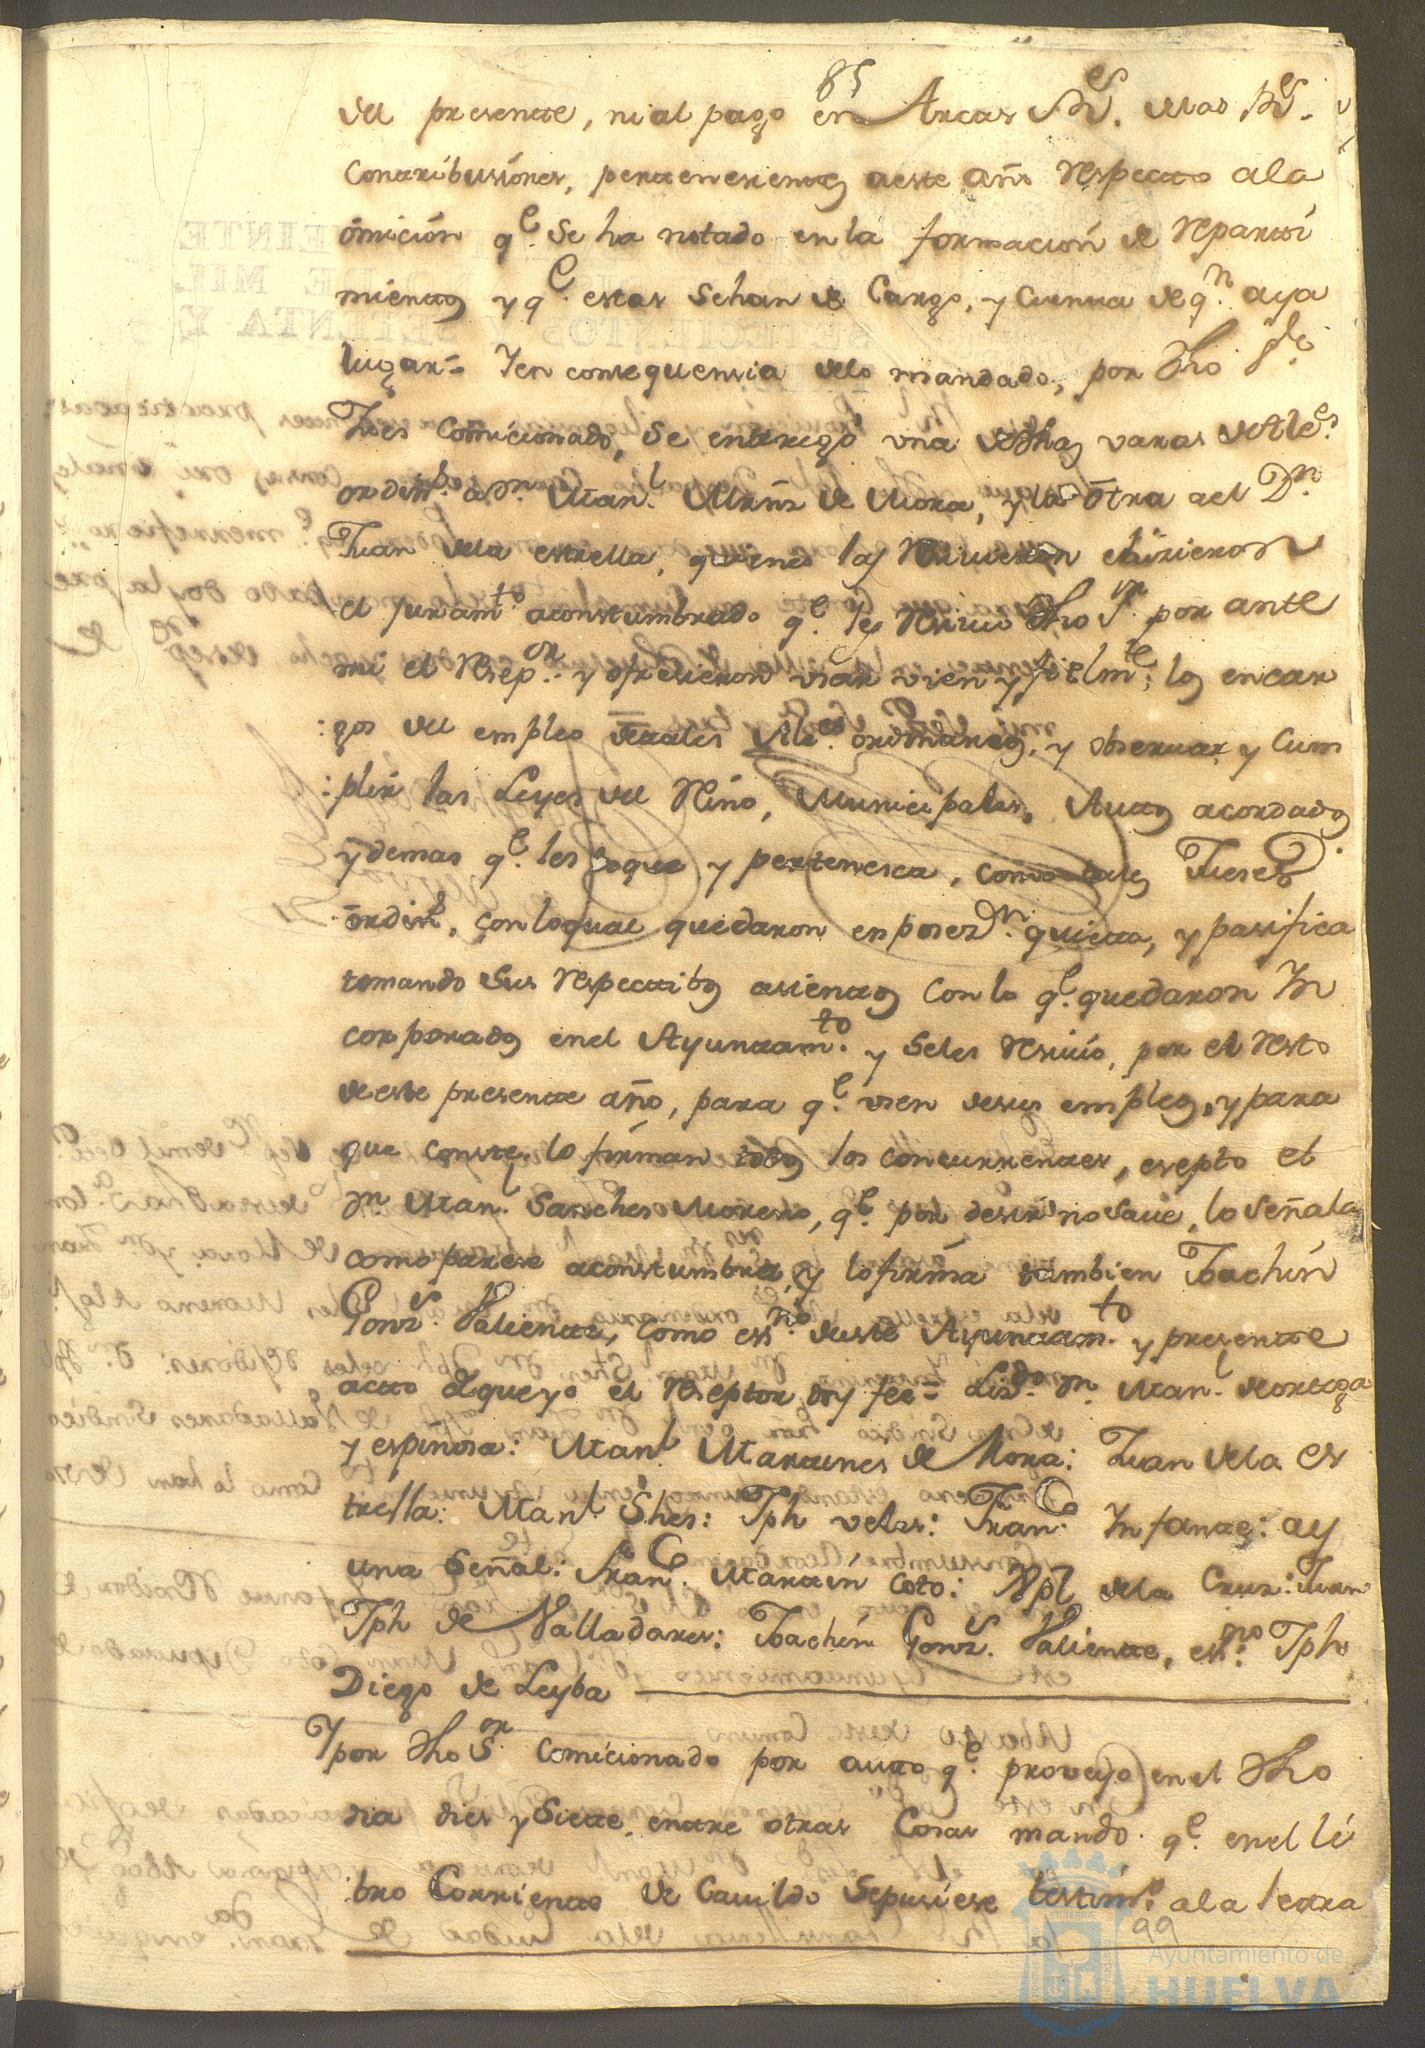 85
del presente, ni al pago en Arcas Rs. delas Rs.
Contribusiones, pertenesientes aeste año respecto ala
omición qe. Se ha notado en la formacion de repartí
mientos y qe. estas Sehan de Cargo, y Cuenta de qn. aya
lugar= Yen consequensia delo mandado, por dho
Jues Comicionado, Se entregó una dedhas varas de Ales.
ordins. a Dn. Manl. Mrñz de Mora, y la otra ael Dn.
Juan dela estrella, quienes las resivieron ehizieron
el juramto. acostumbrado qe. les resivió dho Sr. por ante
mi el resepor. y ofresieron usar vien y fielmte. los encar
:gos del empleo detales Ales. ordinarios, y observar y Cum
:plir las Leyes del Rño, Municipales, Autos acordados
y demas qe. les toque y pertenesca, como tales Jueses
ordins. con loqual quedaron en poszn. quieta, y pasifica
tomando Sus respectibos asientos con lo qe. quedaron Yn
corporados enel Ayuntamto. y Seles resivió, por el resto
deeste presente año, para qe. usen desus empleos, y para
que conste lo firman todos los concurrentes, esepto el
Dn. Manl. Sanches Moreno, qe. por desir no save, lo Señala
como parese acostumbra, y lo firma tambien Joachín
Gonzs. Valiente, como essno. deeste Ayuntamto. y presente
acto de que yo el reseptor doy fee= Lizdo. Dn. Manl. deortega
y espinosa: Manl. Martines de Mora: Juan dela es
trella: Manl. Shes: Jph veles: Franco. Ynfante: ay
una Señal: Franco. Martin Coto: Xpl dela Cruz: Juan
Jph de Valladares: Joachín Gonzs. Valiente, essno. Jph
Diego de Leyba
Y por dho Sor. comicionado por auto qe. proveyó en el dho
dia dies y Siete, entre otras Cosas mandó qe. en el li
bro Corriente de Cavildo Sepusiese testimo. ala letra
99
Ayuntamiento de
HUELVA